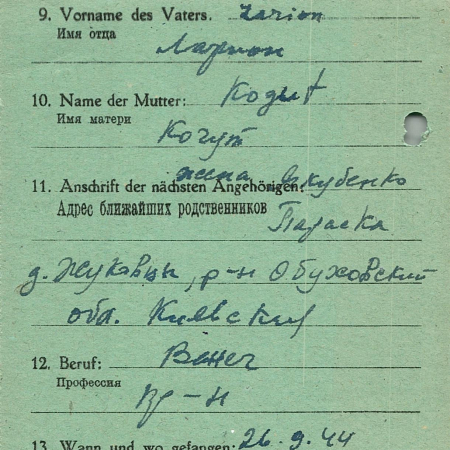 9. Vorname des Vaters. Larion
Имя отца
Ларион
10. Name der Mutter:
Имя матери
Когут
11. Anschrift der nächsten Angehörigen: жена Якубенко
Адрес ближайших родственников
Параска
д. Жуковцы, р-н Обуховский
обл. Киевский
12. Beruf:
Профессия
13. Wann und wo gefangen: 26.9.44